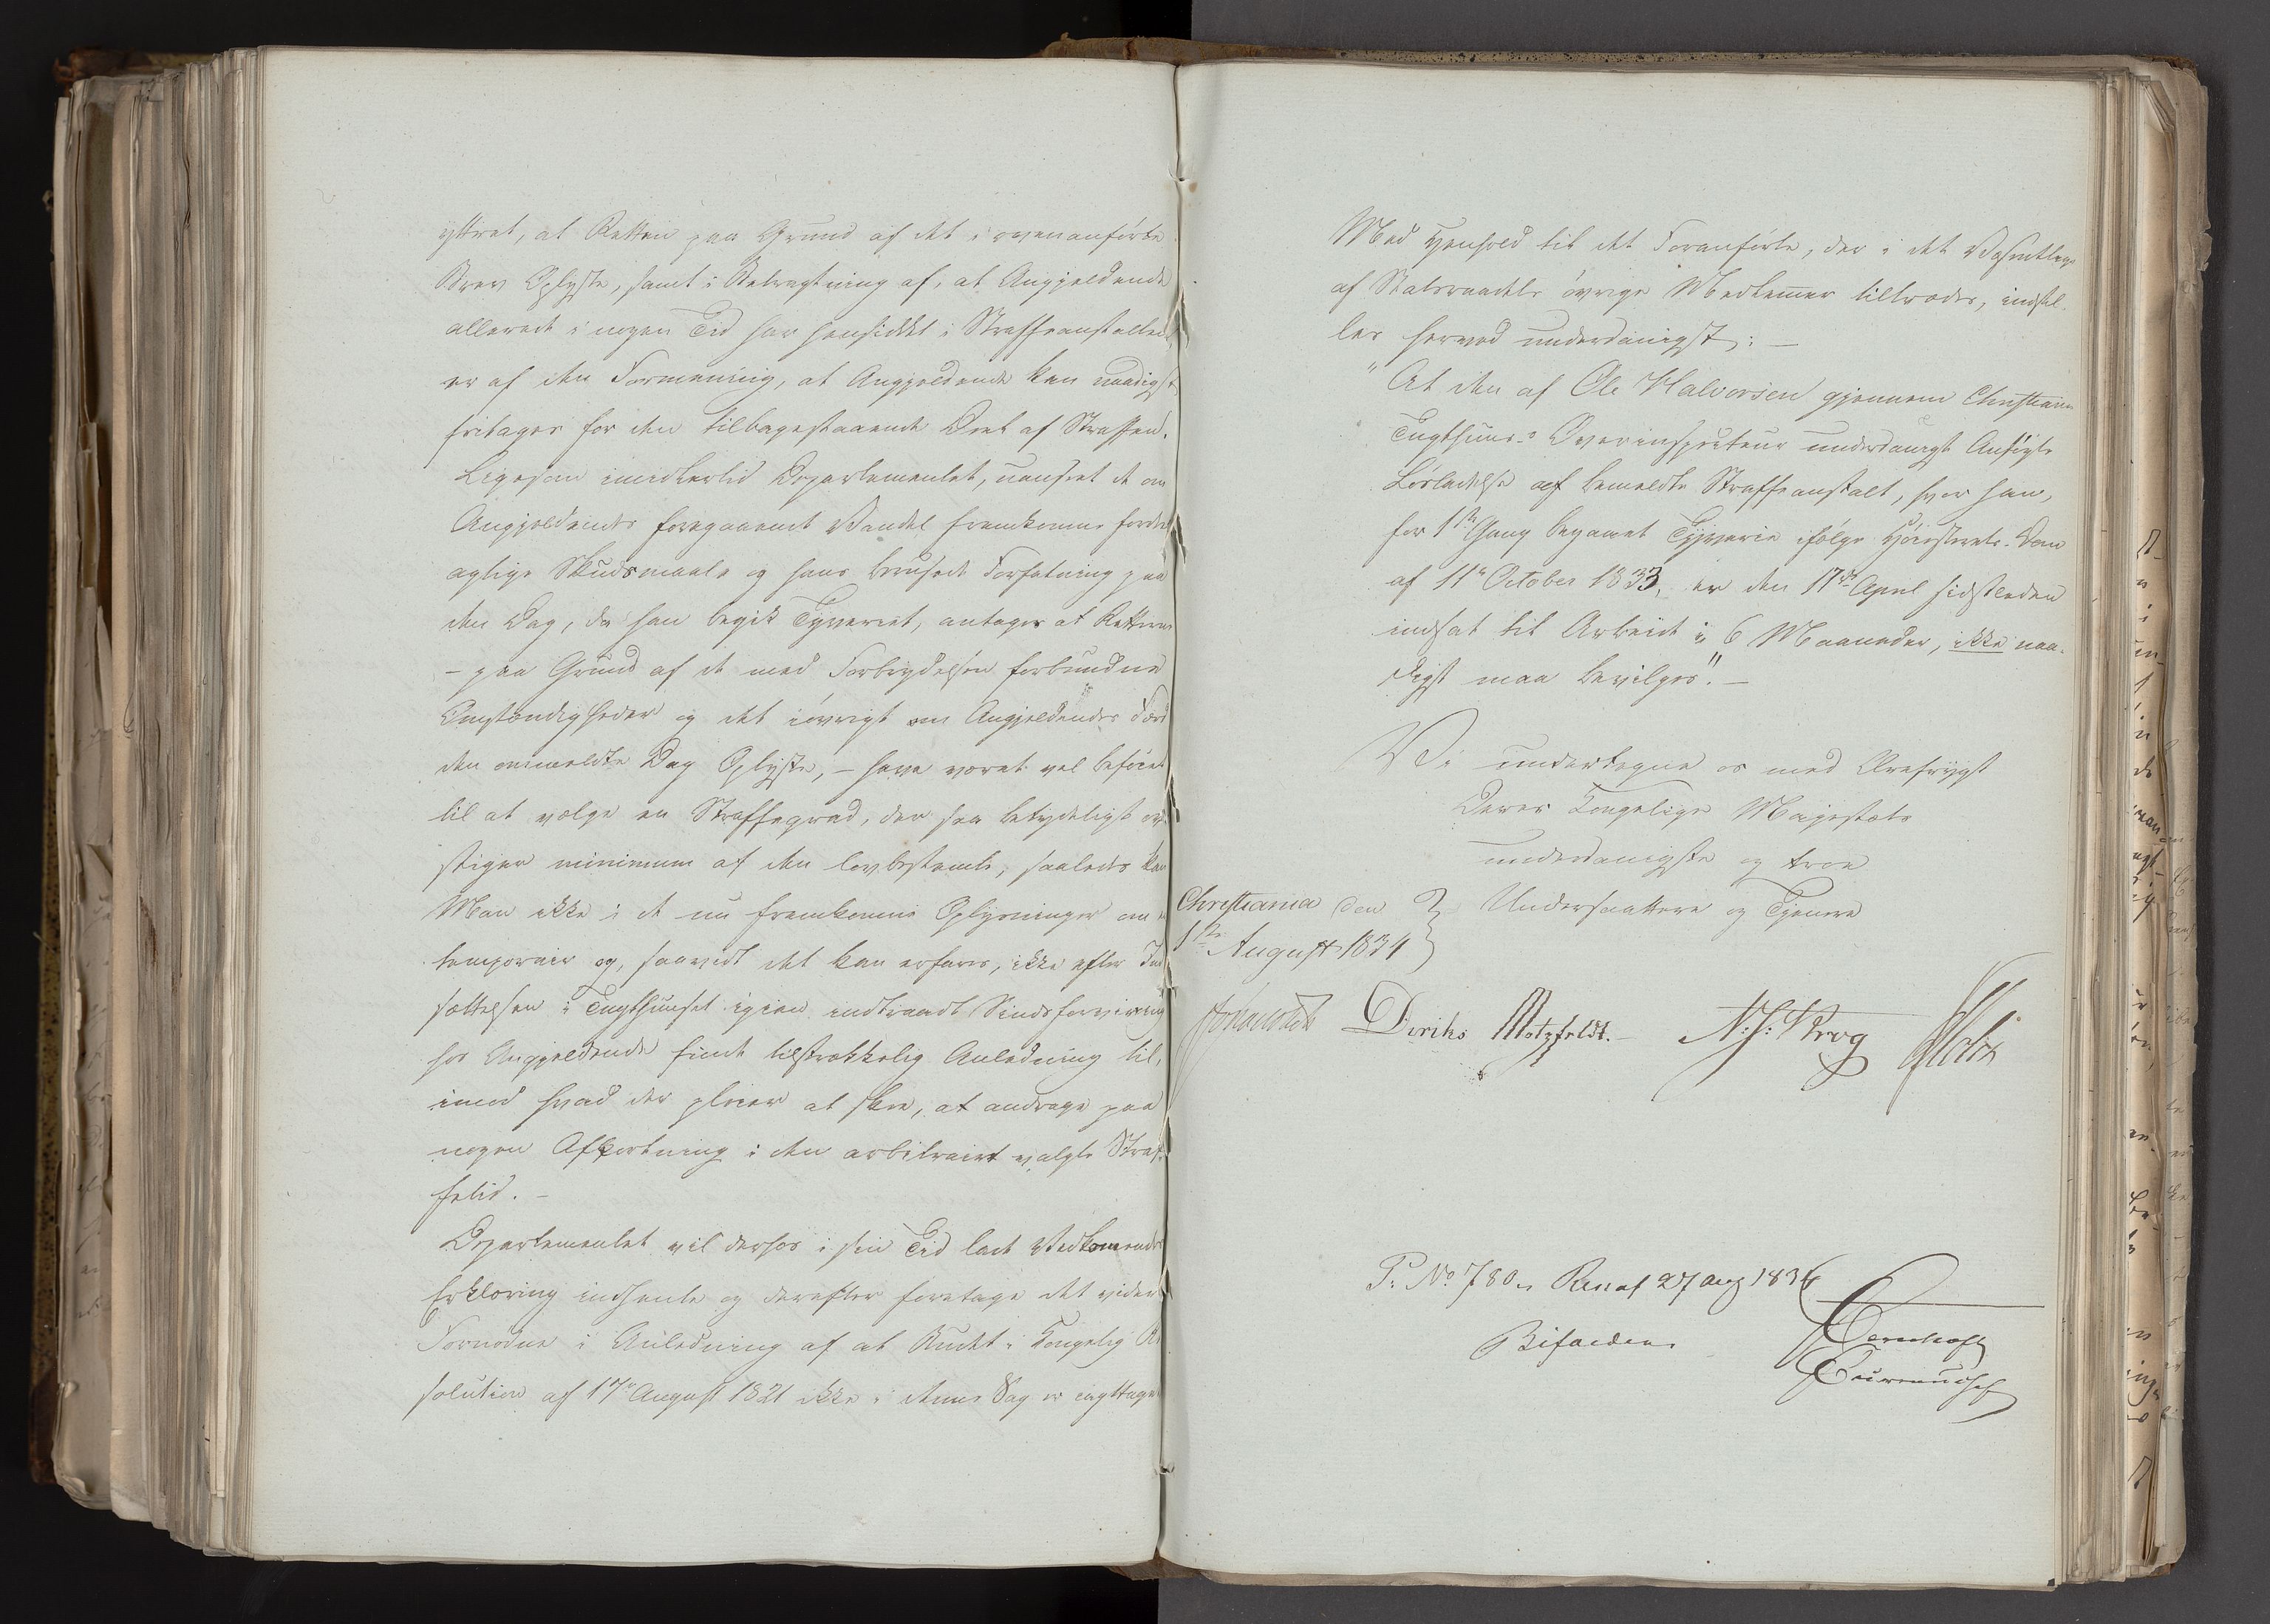 yttret, at Retten paa Grund af det i ovenanførte
Brev Oplyste, samt i Betragtning af, at Angjeldende
allerede i nogen Tid har hensiddet i Straffeanstalten
er af den Formening, at Angjeldende kan naadigst
fritages for den tilbagestaaende Deel af Straffen.
Ligesom imidlertid Departementet, uanseet de om
Angjeldendes foregaaende Vandel fremkomne fordeel
agtige Skudsmaale og hans berusede Forfatning paa
den Dag, da han begik Tyveriet, antager at Retterne
- paa Grund af de med Forbrydelsen forbundne
Omstændigheder og det iøvrigt om Angjeldendes Færd
den ommeldte Dag Oplyste, - have været vel beføiet
til at vælge en Straffegrad, der saa betydeligt over
stiger minimum af den lovbestemte, saaledes kan
Man ikke i de nu fremkomne Oplysninger om en
temporair og, saavidt det kan erfares, ikke efter Ind
sættelsen i Tugthuuset igien indtraadt Sindsforvirring
hos Angjeldende finde tilstrækkelig Anledning til,
imod hvad der pleier at skee, at andrage paa
nogen Afkortning i den arbitrairt valgte Straf-
fetid. -
Departementet vil derhos i sin Tid lade Vedkommendes
Erklæring indhente og derefter foretage det videre
Fornødne i Anledning af at Budet i Kongelig Re
solution af 17de August 1821 ikke i denne Sag er iagttaget
Med Henhold til det Foranførte, der i det Væsentlige
af Statsraadets øvrige Medlemmer tiltrædes, indstil-
les herved underdanigst: -
"At den af Ole Halvorsen gjennem Christiania
Tugthuus's Overinspecteur underdanigst Ansøgte
Løsladelse af bemeldte Straffeanstalt, hvor han,
for 1ste Gang begaaet Tyverie ifølge Høiesterets-Dom
af 11te October 1833, er den 17de April sidstleden
indsat til Arbeide i 6 Maaneder, ikke naa-
digst maa bevilges". -
Vi undertegne os med Ærefrygt
Deres Kongelige Majestæts
underdanigste og troe
Christiania den } Undersaattere og Tjenere
1ste August 1834
Diriks Motzfeldt. - N: J: Krog Holst
P: No 780. Res af 27 Aug 1834
Bifaldes.